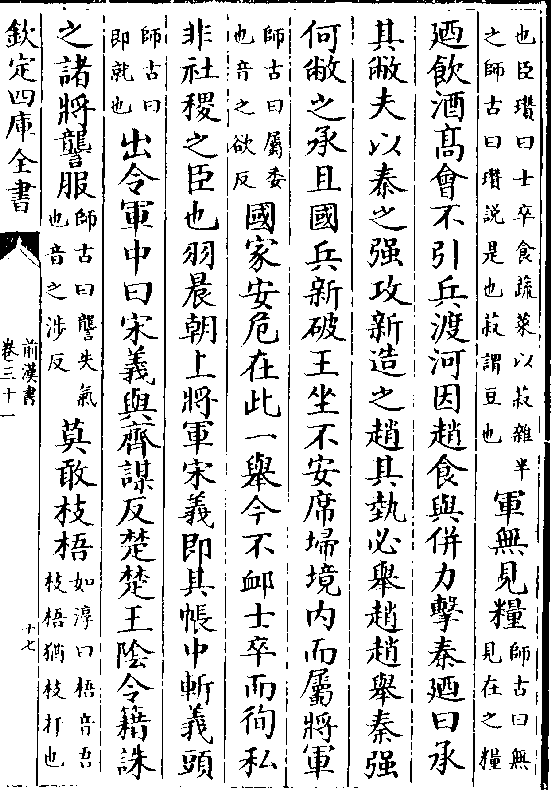 也臣瓚曰士卒食蔬菜以菽雜半
之師古曰瓚説是也菽謂豆也
軍無見糧
師古曰無
見在之糧
廼飲酒髙會不引兵渡河因趙食與併力擊秦廼曰承
其敝夫以秦之强攻新造之趙其埶必舉趙趙舉秦强
何敝之承且國兵新破王坐不安席埽境内而屬將軍
師古曰屬委
也音之欲反
國家安危在此一舉今不䘏士卒而徇私
非社稷之臣也羽晨朝上將軍宋義即其帳中斬義頭
師古曰
即就也
出令軍中曰宋義與齊謀反楚楚王陰令籍誅
之諸將讋服
師古曰讋失氣
也音之涉反
莫敢枝梧
如淳曰梧音吾
枝梧猶枝扞也
欽定四庫全書
前漢書
卷三十一
十七